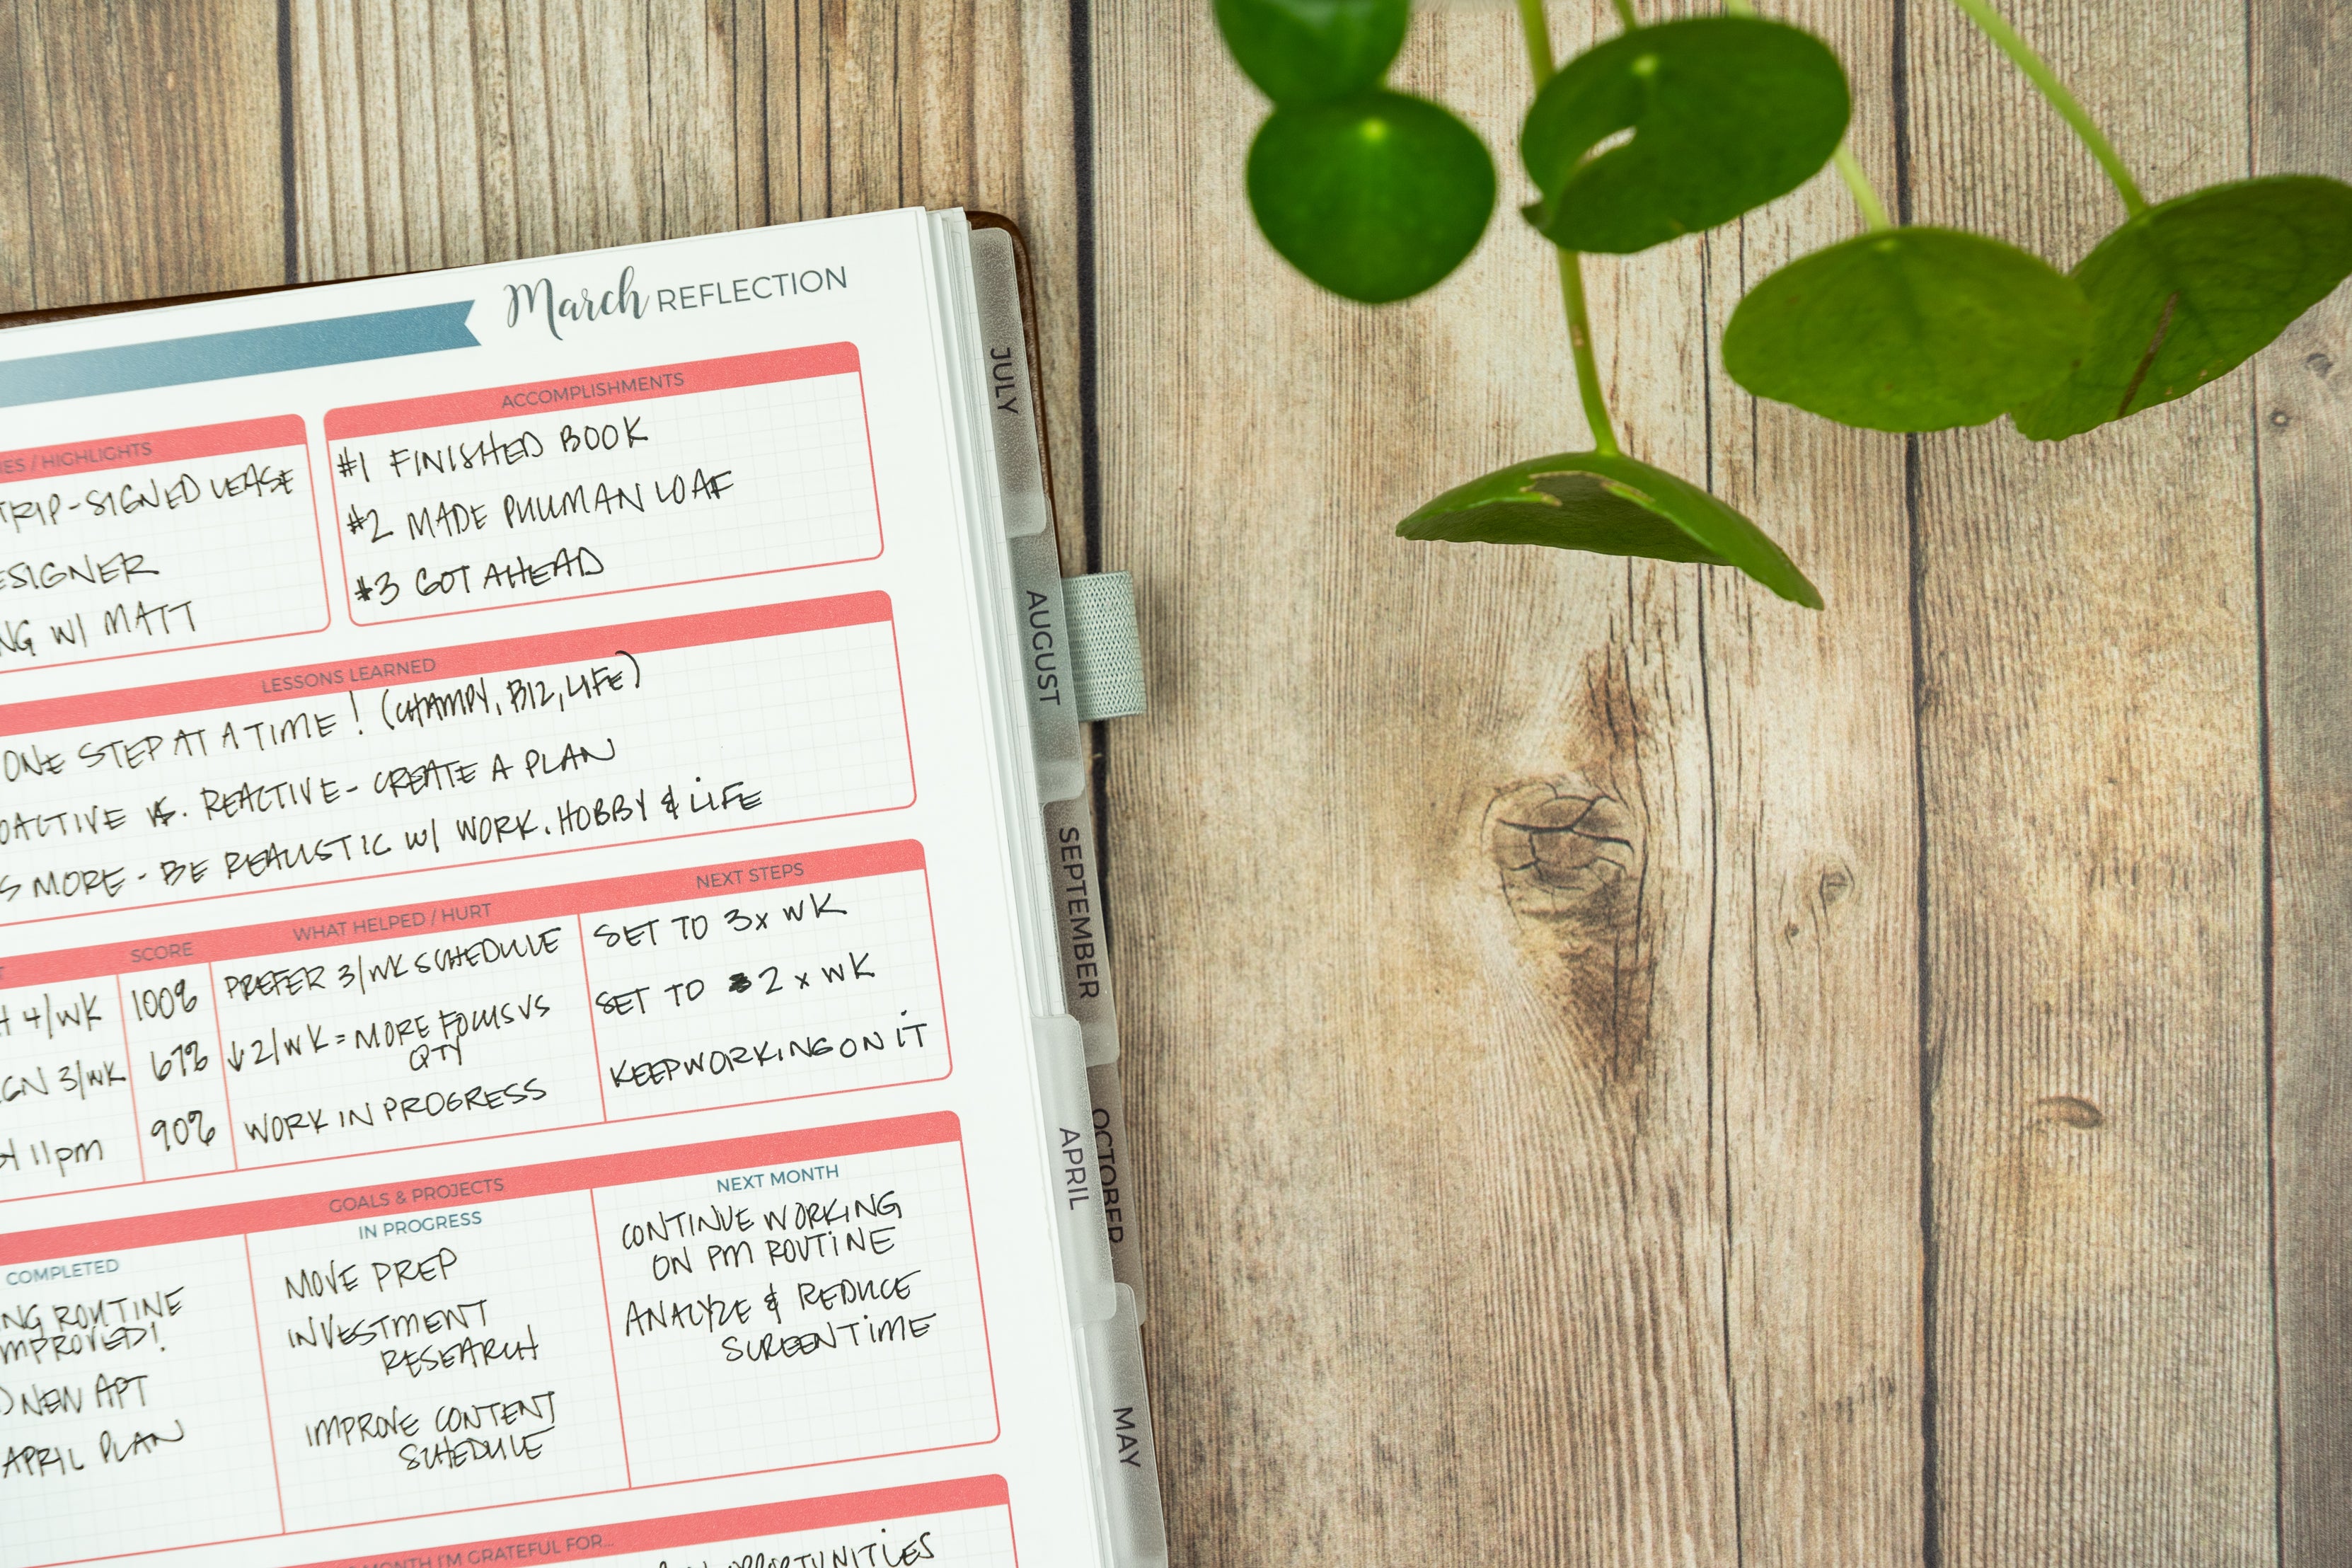 March REFLECTION
HIGHLIGHTS
TRIP - SIGNED LEASE
W/ MATT
ACCOMPLISHMENTS
#1 FINISHED BOOK
#2 MADE PULLMAN LOAF
#3 GOT AHEAD
LESSONS LEARNED
ONE STEP AT A TIME! (CHAMPY, BIZ, LIFE)
VS. REACTIVE - CREATE A PLAN
MORE - BE REALISTIC W/ WORK, HOBBY & LIFE
SCORE
WHAT HELPED / HURT
NEXT STEPS
4/WK
100%
PREFER 3/WK SCHEDULE
SET TO 3x WK
3/WK
67%
↓2/WK = MORE FOCUS VS
QTY
SET TO 2 x WK
11pm
90%
WORK IN PROGRESS
KEEP WORKING ON IT
GOALS & PROJECTS
COMPLETED
ROUTINE
NEW APT
APRIL PLAN
IN PROGRESS
MOVE PREP
INVESTMENT
RESEARCH
IMPROVE CONTENT
SCHEDULE
NEXT MONTH
CONTINUE WORKING
ON PM ROUTINE
ANALYZE & REDUCE
SCREEN TIME
MONTH I'M GRATEFUL FOR...
OPPORTUNITIES
JULY
AUGUST
SEPTEMBER
OCTOBER
APRIL
MAY